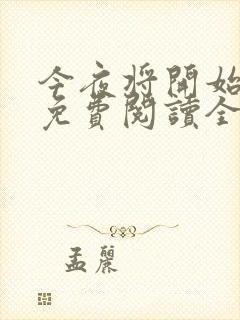 今夜将開始
免費閱讀全
孟麗